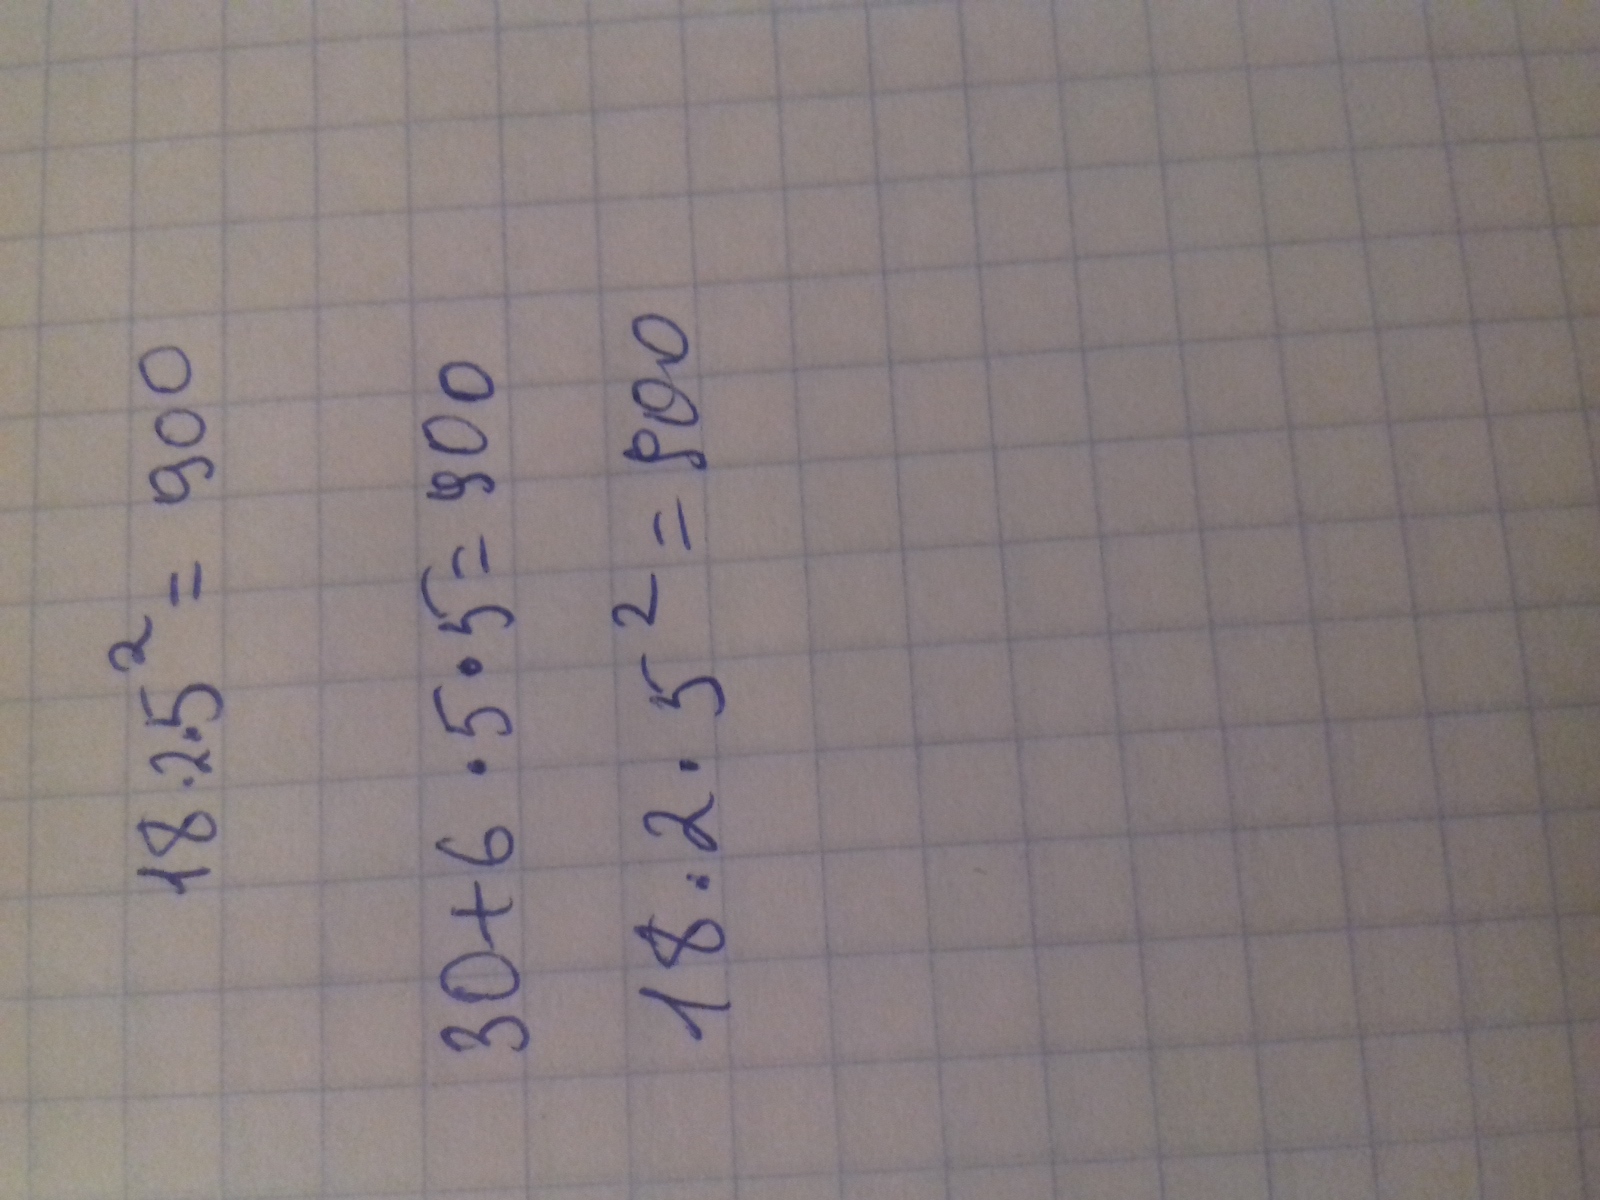 18.2.5² = 900
30+6.5.5=900
18.2.5²=900